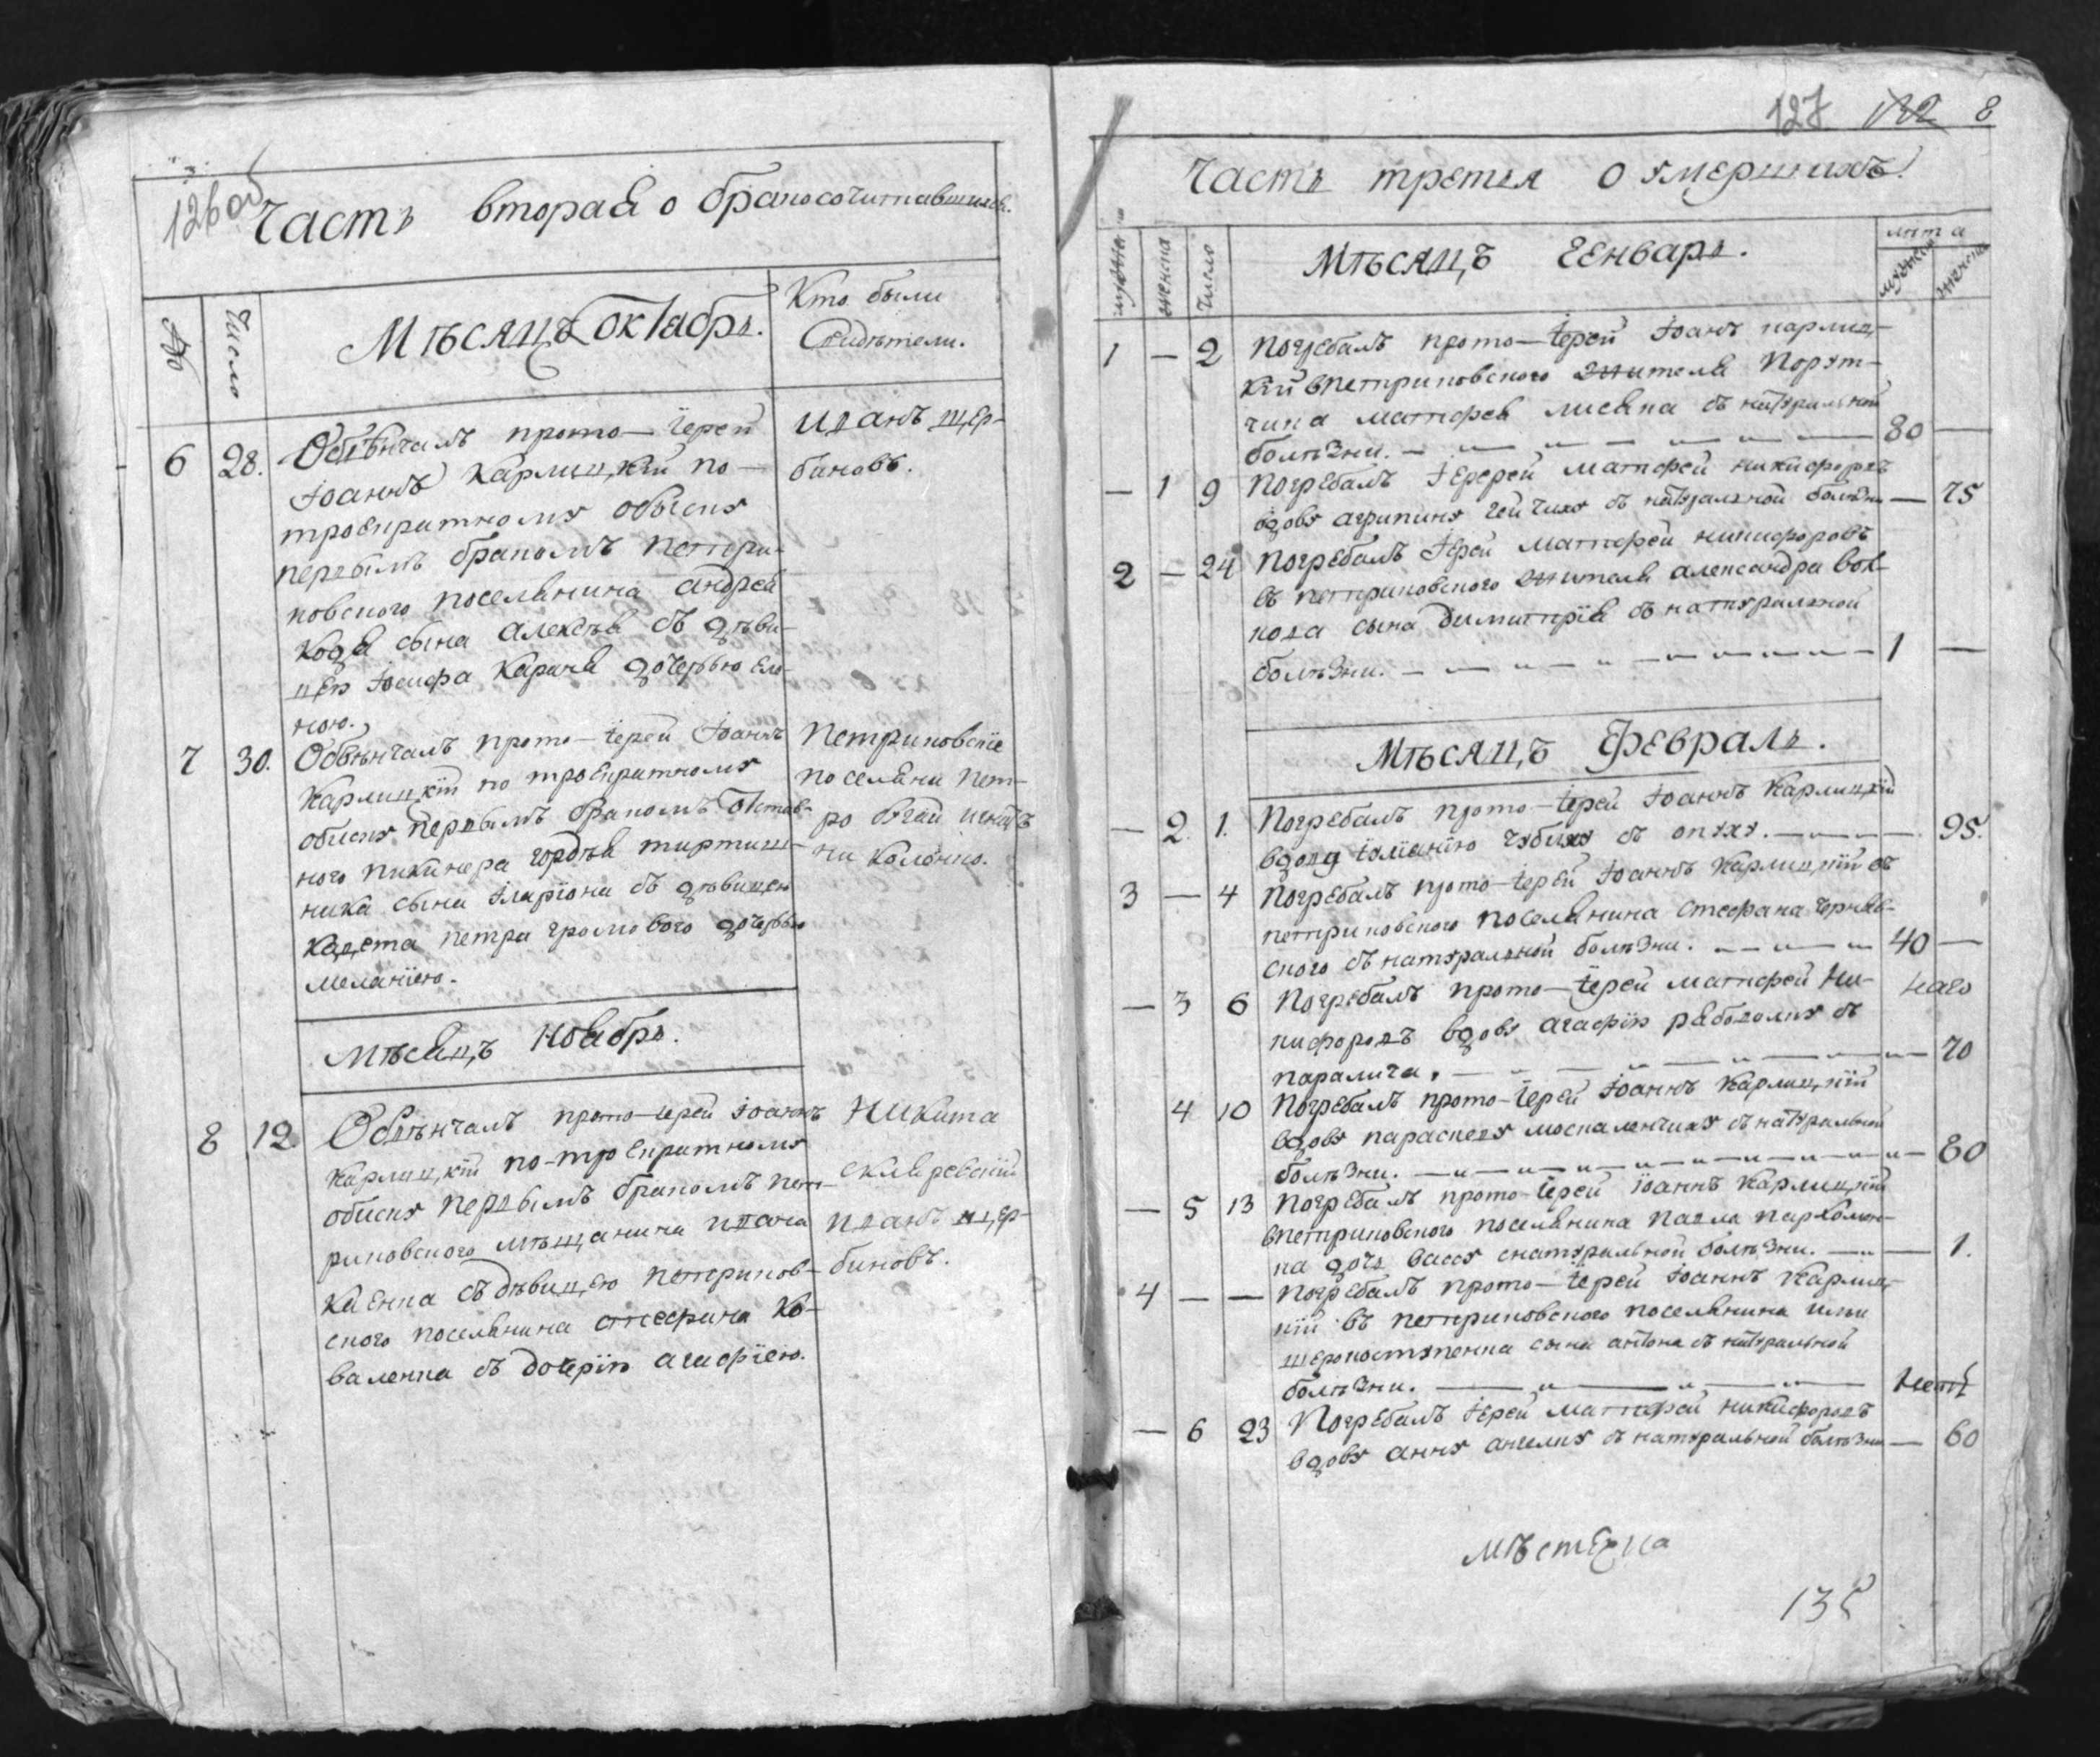 126об
Часть вторая о бракосочитавшихся.
Число
Мѣсяцъ октабрь.
Кто были
Свидѣтели.
6 28. Обвѣнчалъ прото-іерей
Іоаннъ Карлицкій по
троекратному обыску
первымъ бракомъ петри-
ковского поселянина андрея
сына алексѣя съ дѣви-
цею Іосифа дочерью еле-
ною.
Иванъ щер-
биновъ.
7 30. Обвѣнчалъ прото-іерей Іоаннъ
Карлицкій по троекратному
обиску первымъ бракомъ
ного пикинера гордѣя
ника сына Іларіона съ дѣвицею
петра громового дочерью
меланіею.
Петриковскіе
поселяни пет-
ро бугай
Мѣсяцъ ноябрь.
8 12. Обвѣнчалъ прото-іерей Іоаннъ
Карлицкій по-троекратному
обиску первымъ бракомъ пет-
риковского мѣщанина
съ дѣвицею петриков-
ского поселянина стефана Ко-
валенка съ дочерію агафіею.
Никита
скляревскій
иванъ щер-
биновъ.
127 122 8
Часть третья о умершихъ.
мужеска женска Число
Мѣсяцъ Генварь.
лѣта
мужеска женска
1 — 2 Погребалъ прото-іерей Іоанъ карлиц-
кій впетриковского жителя Порут-
чика матфея лисяка съ натуральной
болѣзни. 80 —
— 1 9 Погребалъ Іеререй матфей никифоровъ
вдову агрипину съ натуральной болѣзни — 75
2 — 24 Погребалъ Іерей матфей никифоровъ
въ петриковского жителя александра вов-
кова сына димитрія съ натуральной
болѣзни. 1 —
Мѣсяцъ Февраль.
— 2 1. Погребалъ прото-іерей Іоаннъ Карлицкій
вдову іуліанію чубиху съ опуху. — 95.
3 — 4 Погребалъ прото-іерей Іоаннъ Карлицкій въ
петриковского поселянина стефана черняв-
ского съ натуральной болѣзни. 40 —
— 3 6 Погребалъ прото-іерей матфей ни-
кифоровъ вдову агафію рябоволку съ
паралича. 70
4 10 Погребалъ прото-іерей Іоаннъ Карлицкій
вдову параскеву москаленчиху съ натуральной
болѣзни. 80
— 5 13 Погребалъ прото-іерей іоаннъ Карлицкій
впетриковского поселянина павла пархомен-
ка дочь вассу снатуральной болѣзни. — 1.
4 — — Погребалъ прото-іерей Іоаннъ Карлиц-
кій въ петриковского поселянина ильи
широкоступенка сына антона съ натуральной
болѣзни.
— 6 23 Погребалъ Іерей матфей никифоровъ
вдову анну съ натуральной болѣзни — 60
мѣстечка